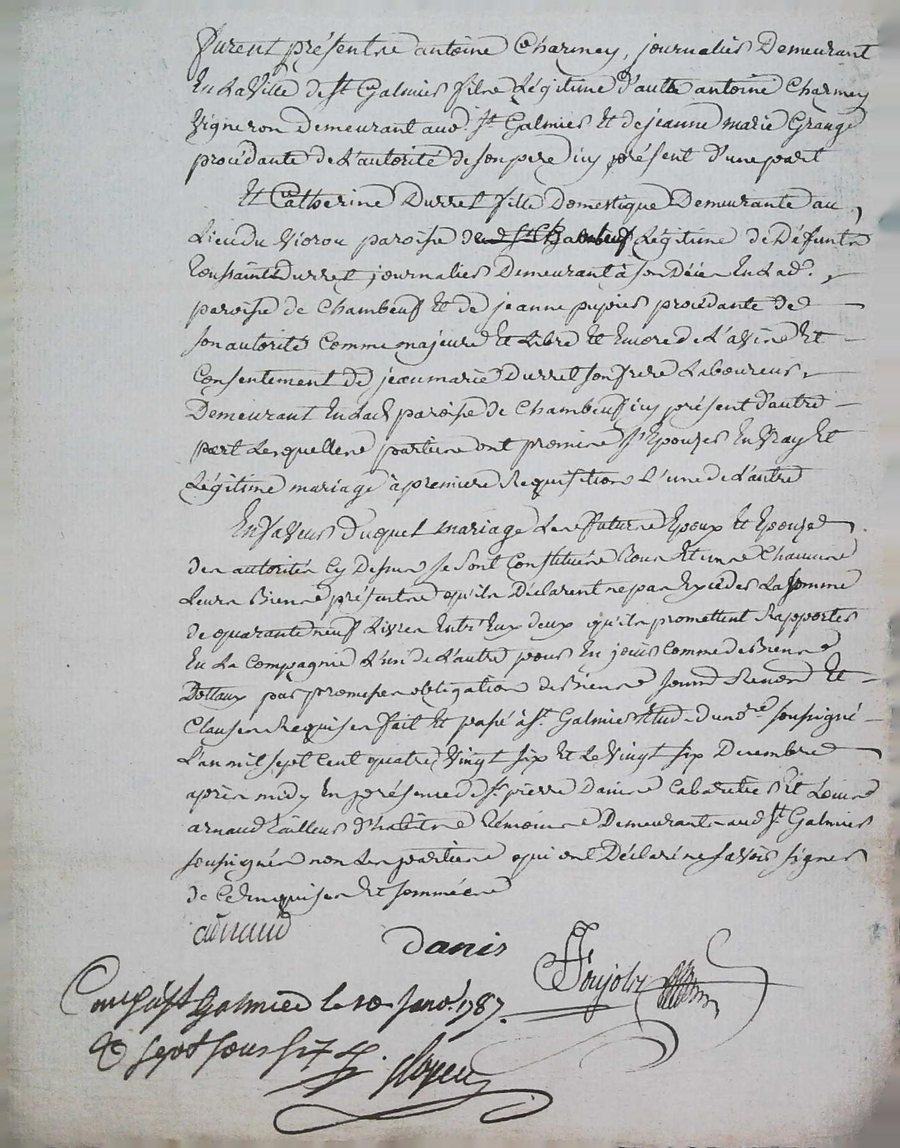 furent présents antoine Charmey, journalier Demeurant
En La Ville de St Galmier fils Légitime d'autre antoine Charmey
Vigneron Demeurant aud. St Galmier Et de jeanne marie Grange
procédants de L'autorité de son pere icy présent d'une part
Et Catherine Durret fille Domestique Demeurante au
Lieu du Viorou paroisse de Légitime de Défunts
toussaints Durret journalier Demeurant à son Décès En Lad.
paroisse de Chambeuf Et de jeanne pupier procédante de
son autorité Comme majeure Et Libre Et Encore de L'avis Et
Consentement de jean marie Durret son frere Laboureur
Demeurant En Lad. paroisse de Chambeuf icy présent d'autre
part Lesquelles parties ont promis s'Epouser En Vray Et
Légitime mariage à premiere Requisition L'une de L'autre
En faveur Duquel mariage Les futurs Epoux Et Epouse
des autorités Cy Dessus se sont Constitués tous Et uns Chacuns
Leurs Biens présents qu'ils Déclarent ne pas Excéder La somme
de quarante neuf Livres Entr'Eux deux qu'ils promettent Rapporter
En La Compagnie L'un de L'autre pour En jouir Comme de Biens
Dottaux par promesse obligation de Biens Soum. Renon. Et
Clauses Requises fait Et passé à St. Galmier Etude du no.re soussigné
L'an mil sept Cent quatre Vingt six Et Le Vingt six Decembre
après midy En présence de Sr. pierre Danis Cabaretier Et Louis
arnaud tailleur d'habits témoins Demeurants aud. St. Galmier
soussignés non Les parties qui ont Déclaré ne savoir signer
de Ce Enquises Et sommées
arnaud
Danis
Con.lé à St Galmier le 10 janv. 1787.